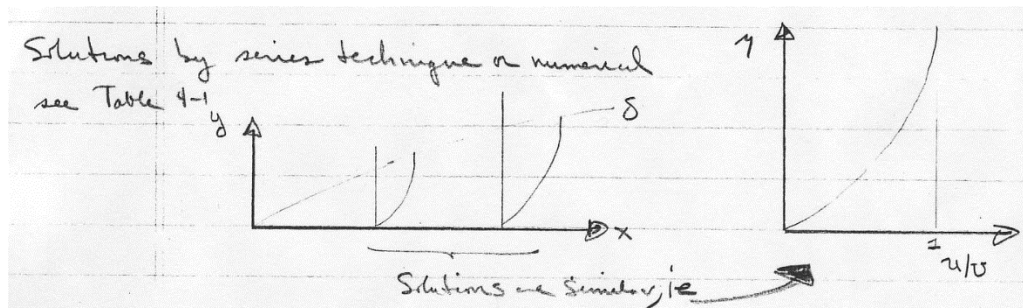 Solutions by series technique or numerical
see Table 4-1
y
δ
x
Solutions are similar, ie
η
1
u/U